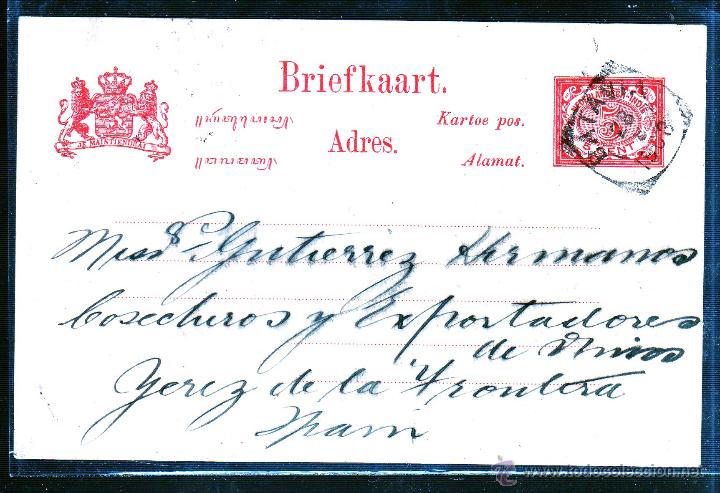 Briefkaart.
Kartoe pos.
Adres.
Alamat.
JE MAINTIENDRAI
5
CENT
BATAVIA
Messrs Gutierrez Hermanos
Cosecheros y Exportadores
de Vinos
Yerez de la Frontera
Spain
todocoleccion.net